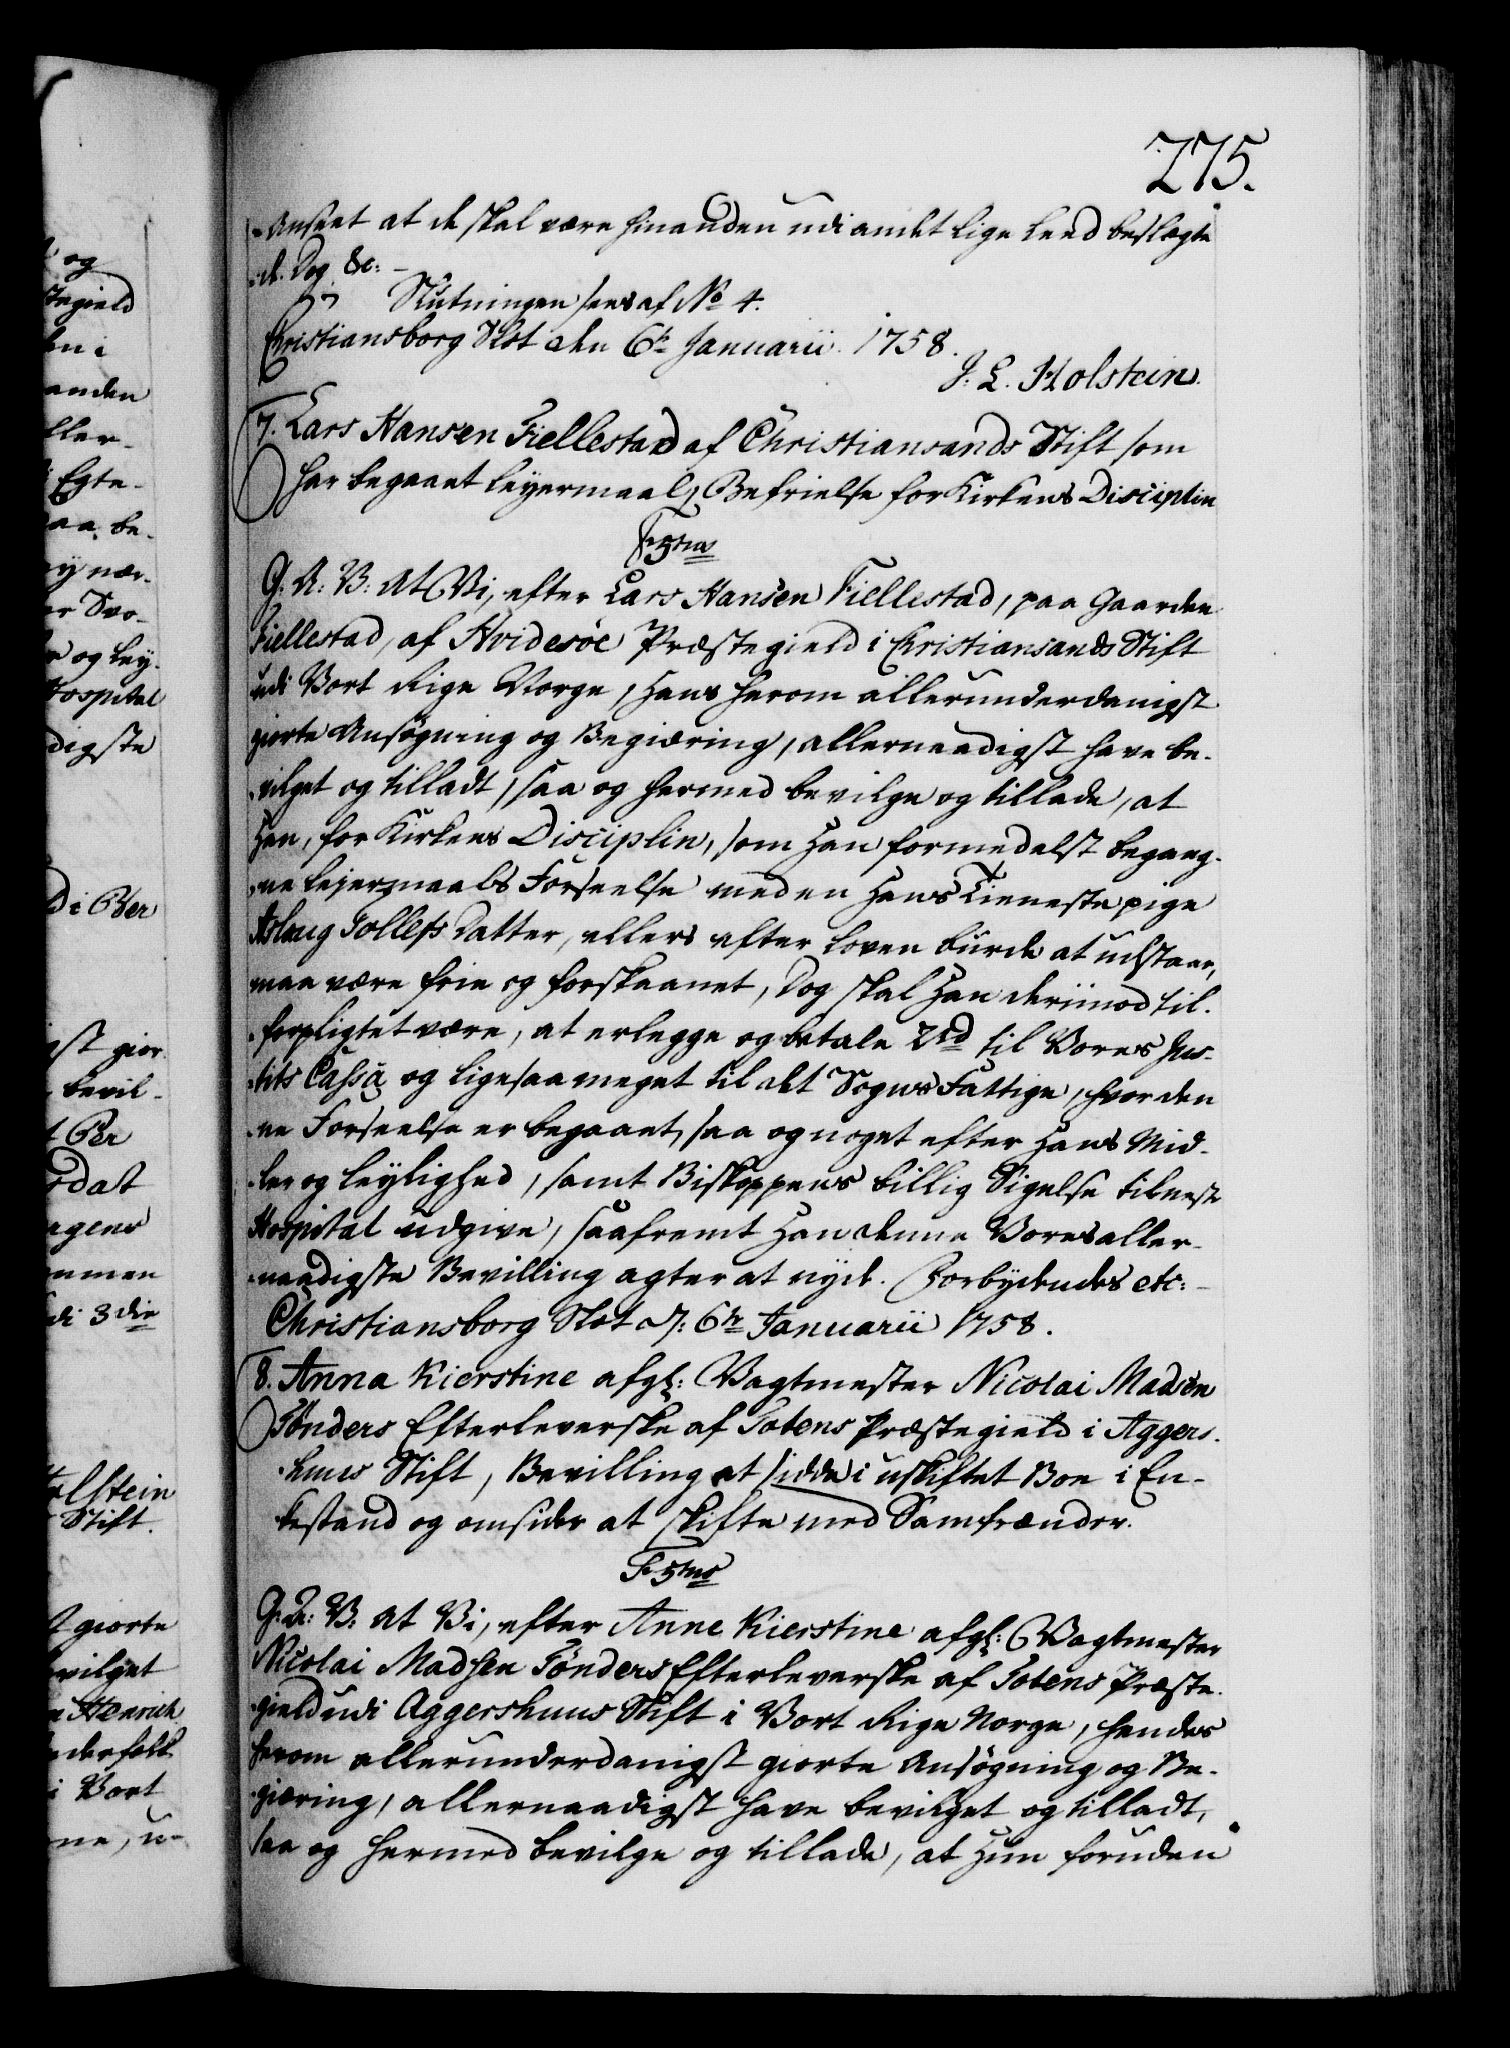 275.
-anseet at de skal være hinanden udi andet lige Leed beslægte-
-de. Dog &c: -
Slutningen sees af No 4.
Christiansborg Slot den 6te Januarii 1758.
J. L. Holstein.
7. Lars Hansen Fiellestad af Christiansands Stift som
har begaaet Leyermaal, Befrielse for Kirkens Disciplin
F 5tus
G. A: V: At Vi, efter Lars Hansen Fiellestad, paa Gaarden
Fiellestad, af Hvidesøe Præstegield i Christiansands Stift
udi Vort Rige Norge, hans herom allerunderdanigst
giorte Ansøgning og Begiæring, allernaadigst have be-
-vilget og tilladt, saa og hermed bevilge og tillade, at
han, for Kirkens Disciplin, som han formedelst begang-
-ne Lejermaals Forseelse med en hans Tieneste pige
Aslaug Tollefs Datter, ellers efter Loven burde at udstaae,
maa være frie og forskaanet, Dog skal han derimod til-
-forpligtet være, at erlegge og betale 2 rd til Vores Jus-
-tits Cassa og ligesaa meget til det Sogns Fattige, hvor den
-ne Forseelse er begaaet, saa og noget efter hans Mid-
-ler og Leylighed, samt Biskoppens billig Sigelse til neste
Hospital udgive, saafremt han denne Vores aller-
-naadigste Bevilling agter at nyde. Forbydendes etc: -
Christiansborg Slot d: 6te Januarii 1758.
8. Anna Kierstine afgl: Vagtmester Nicolai Madsen
Tønders Efterleverske af Totens Præstegield i Aggers-
-huus Stift, Bevilling at sidde i uskiftet Boe i En-
kestand og omsider at skifte med Samfrænder.
F 5tus
G. A: V: At Vi, efter Anne Kierstine afgl: Vagtmester
Nicolai Madsen Tønders Efterleverske af Totens Præste-
-gield udi Aggershuus Stift i Vort Rige Norge, hendes
herom allerunderdanigst giorte Ansøgning og Be-
-giæring, allernaadigst have bevilget og tilladt,
saa og hermed bevilge og tillade, at hun foruden